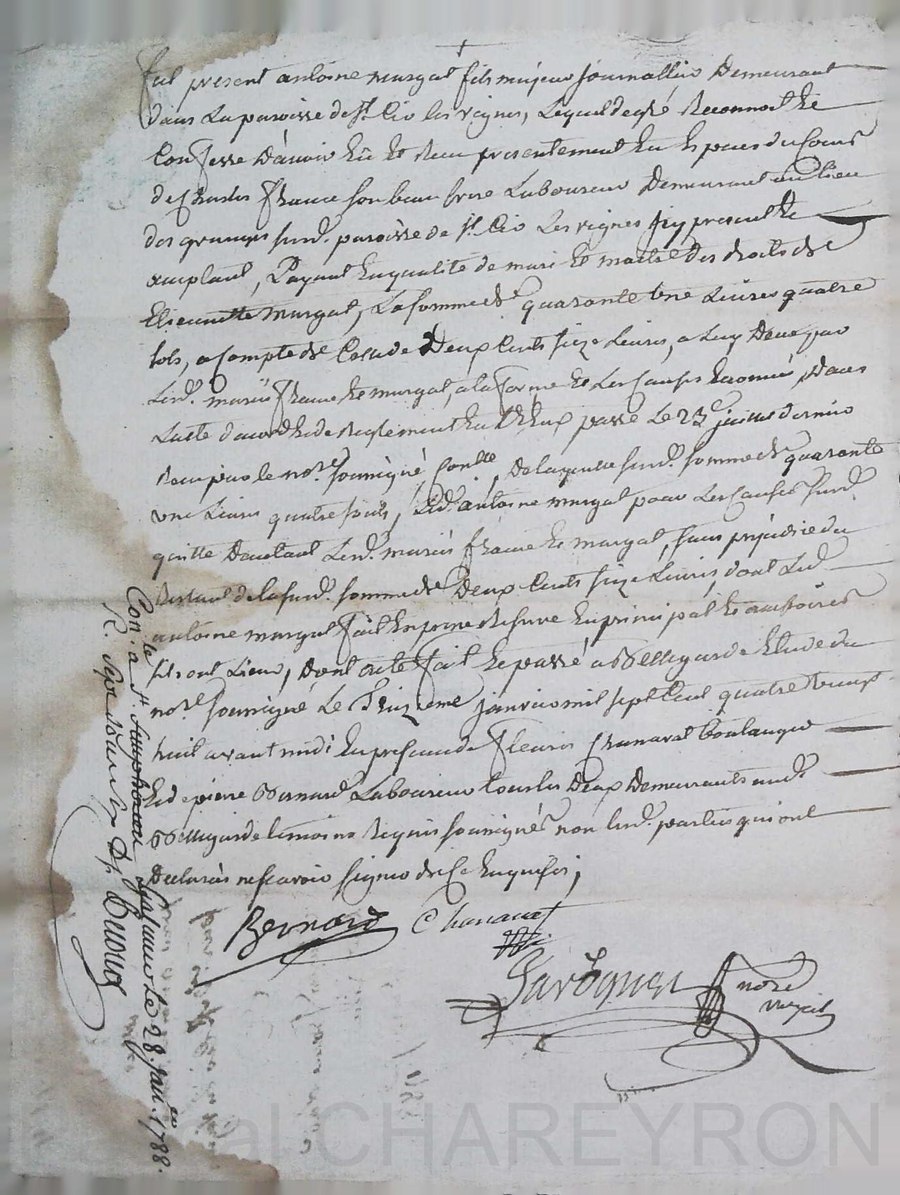 Fut present antoine murgat fils majeur journallier Demeurant
dans La paroisse de St. Cir les vignes, Lequel de gré Reconnoit Et
Confesse D'avoir Eu Et Recu presentement En Especes du Cours
de Charles france son beau frere Laboureur Demeurant au lieu
des granges surd. paroisse de St. Cir Les vignes icy present Et
acceptant, Payant En qualité de mari Et maitre des droits de
Etiennette murgat, La somme de quarante Une Livres quatre
sols, a Compte de Celle de Deux Cents seize Livres, a Luy Deue par
Lesd. mariés france Et murgat, a la forme Et Les Causes Enoncés, Dans
L'acte d'accord Et de Reglement Entr'Eux passé Le 23e juillet dernier
Recu par le nore. soussigné, de laquelle surd. somme de quarante
une Livres quatre sols, Led. antoine murgat pour Les Causes surd.
quitte D'autant Lesd. mariés france Et murgat, sans préjudice du
Restant de la surd. somme de Deux Cents seize Livres, dont Led.
antoine murgat fait Expresse Reserve En principal Et accessoires
si sont Lieu, Dont acte fait Et passé a Bellegarde Etude du
nore. soussigné Le janvier mil sept Cent quatre vingt
huit avant midi En presence de fleurie Chanavat boulanger
Et de pierre Bernard Laboureur tous les Deux Demeurants aud.
Bellegarde temoins Requis soussignés non Lesd. parties qui ont
Declarés ne scavoir signer de Ce Enquises,
Bernard Chanavat
nore
Royal
Con. a St. Symphorien le 28. janer. 1788.
R.
CHAREYRON